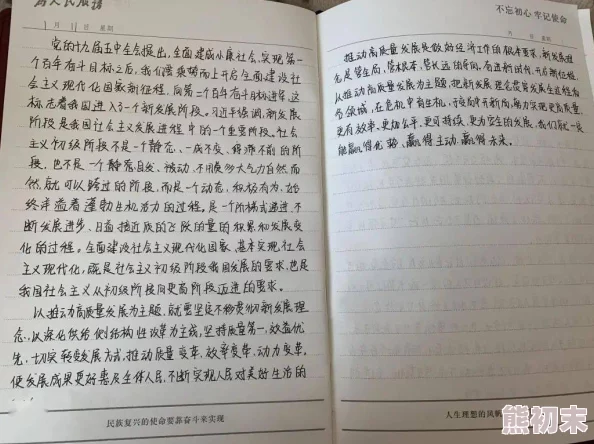 为人民服务
1月11日 星期
党的十九届五中全会提出，全面建成小康社会、实现第一
个百年奋斗目标之后，我们要乘势而上开启全面建设社
会主义现代化国家新征程，向第二个百年奋斗目标进军，这
标志着我国进入了一个新发展阶段。习近平强调，新发展
阶段是我国社会主义发展进程中的一个重要阶段。社会
主义初级阶段不是一个静态、一成不变、停滞不前的阶
段，也不是一个自发、被动、不用费多大气力自然而
然就可以跨过的阶段，而是一个动态、积极有为、始
终洋溢着蓬勃生机活力的过程，是一个阶梯式递进、不
断发展进步、日益接近质的飞跃的量的积累和发展变
化的过程。全面建设社会主义现代化国家、基本实现社会
主义现代化，既是社会主义初级阶段我国发展的要求，也是
我国社会主义从初级阶段向更高阶段迈进的要求。
以推动高质量发展为主题，就要坚定不移贯彻新发展理
念，以深化供给侧结构性改革为主线，坚持质量第一、效益优
先，切实转变发展方式，推动质量变革、效率变革、动力变革，
使发展成果更好惠及全体人民，不断实现人民对美好生活的
民族复兴的使命要靠奋斗来实现
不忘初心 牢记使命
月 日 星期
推动高质量发展是做好经济工作的根本要求。新发展理
念是管全局、管根本、管长远的导向。奋进新时代、开启新征程，
以推动高质量发展为主题，把新发展理念贯穿发展全过程和
各领域，在危机中育先机、于变局中开新局，努力实现更高质量、
更有效率、更加公平、更可持续、更为安全的发展，我们就一定
能赢得优势、赢得主动、赢得未来。
人生理想的风帆
熊初末